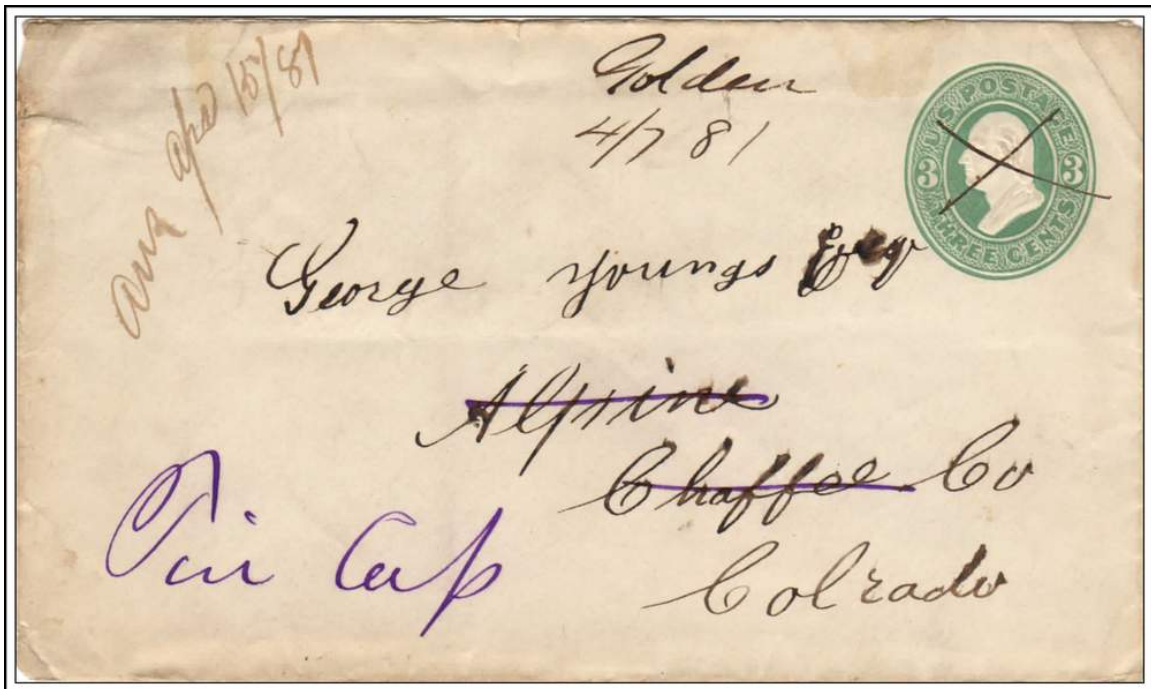 Ans Apr 15/81
Golden
4/7 81
U.S. POSTAGE
3 3
THREE CENTS
George Youngs Esqr
Alpine
Chaffee Co
Colrado
Tin Cup